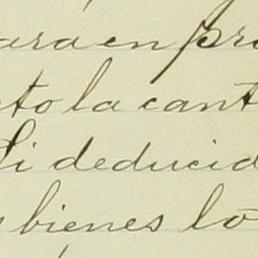 ara en pr
to la cant
i deducid
bienes lo